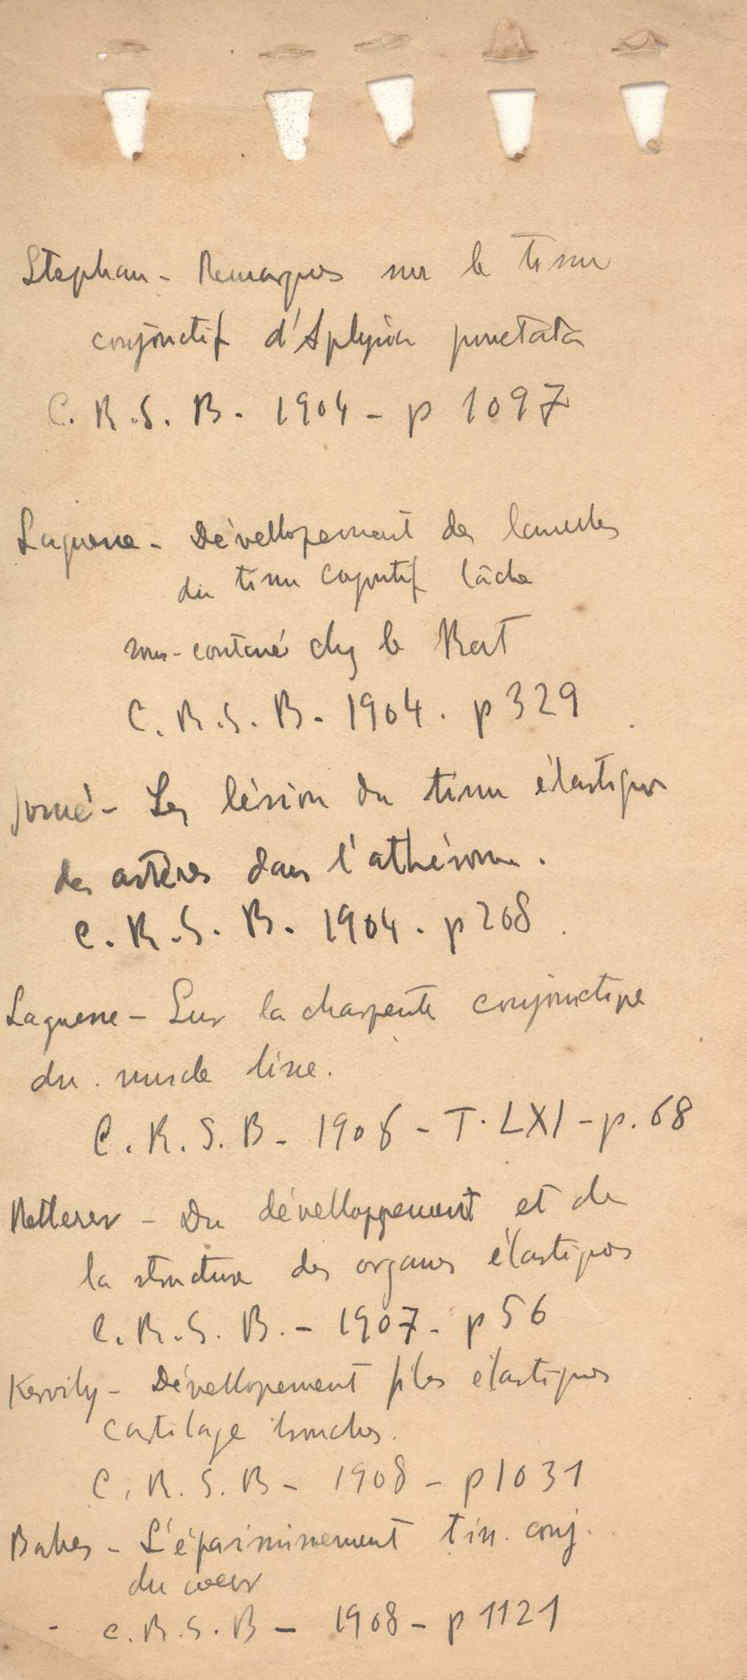 Stephan - Remarques sur le tissu
conjonctif d'Aplysia punctata
C. R. S. B. 1904 - p 1097
Laguesse - Dévellopement des lamelles
du tissu conjontif lâche
sous-cutané chez le Rat
C. R. S. B. 1904. p 329
Josué - Les lésion du tissu élastique
des artères dans l'athérome.
C. R. S. B. 1904. p 208
Laguesse - Sur la charpente conjonctive
du muscle lisse.
C. R. S. B - 1906 - T. LXI - p. 68
Retterer - Du dévelloppement et de
la structure des organes élastiques
C. R. S. B. - 1907 - p 56
Kervily - Dévellopement fibes élastiques
cartilage bronches.
C. R. S. B - 1908 - p 1031
Babes - L'épaississement tiss. conj.
du cœur
- C. R. S. B - 1908 - p 1121